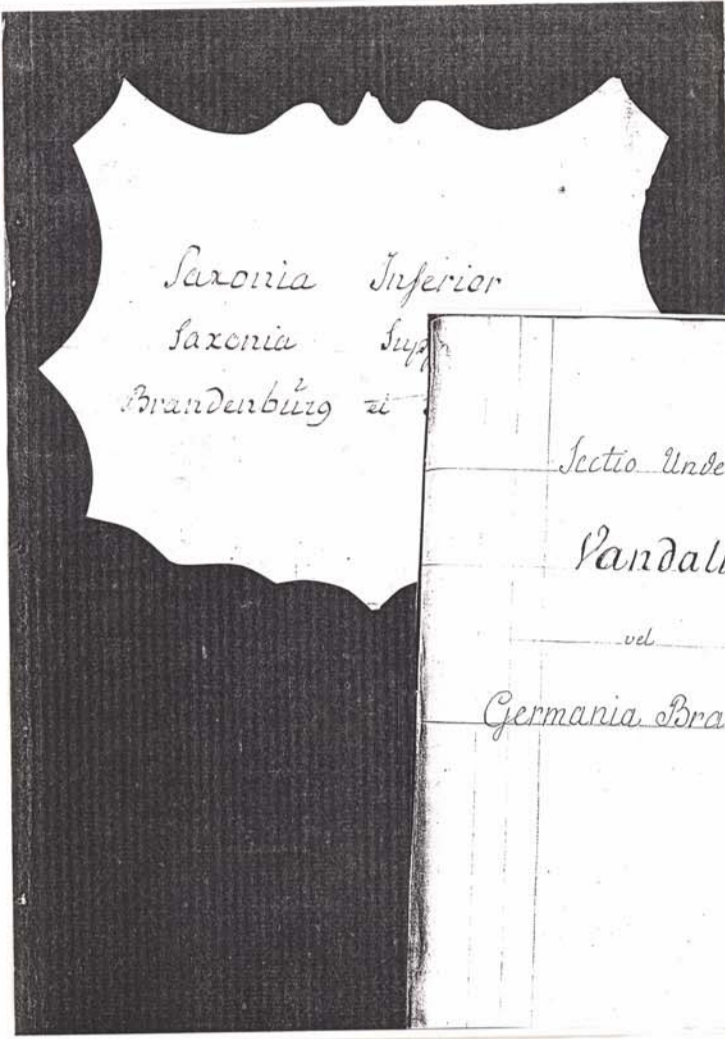 Saxonia Inferior
Saxonia Sup
Brandenbúrg et
Sectio Unde
Vandali
vel
Germania Bra